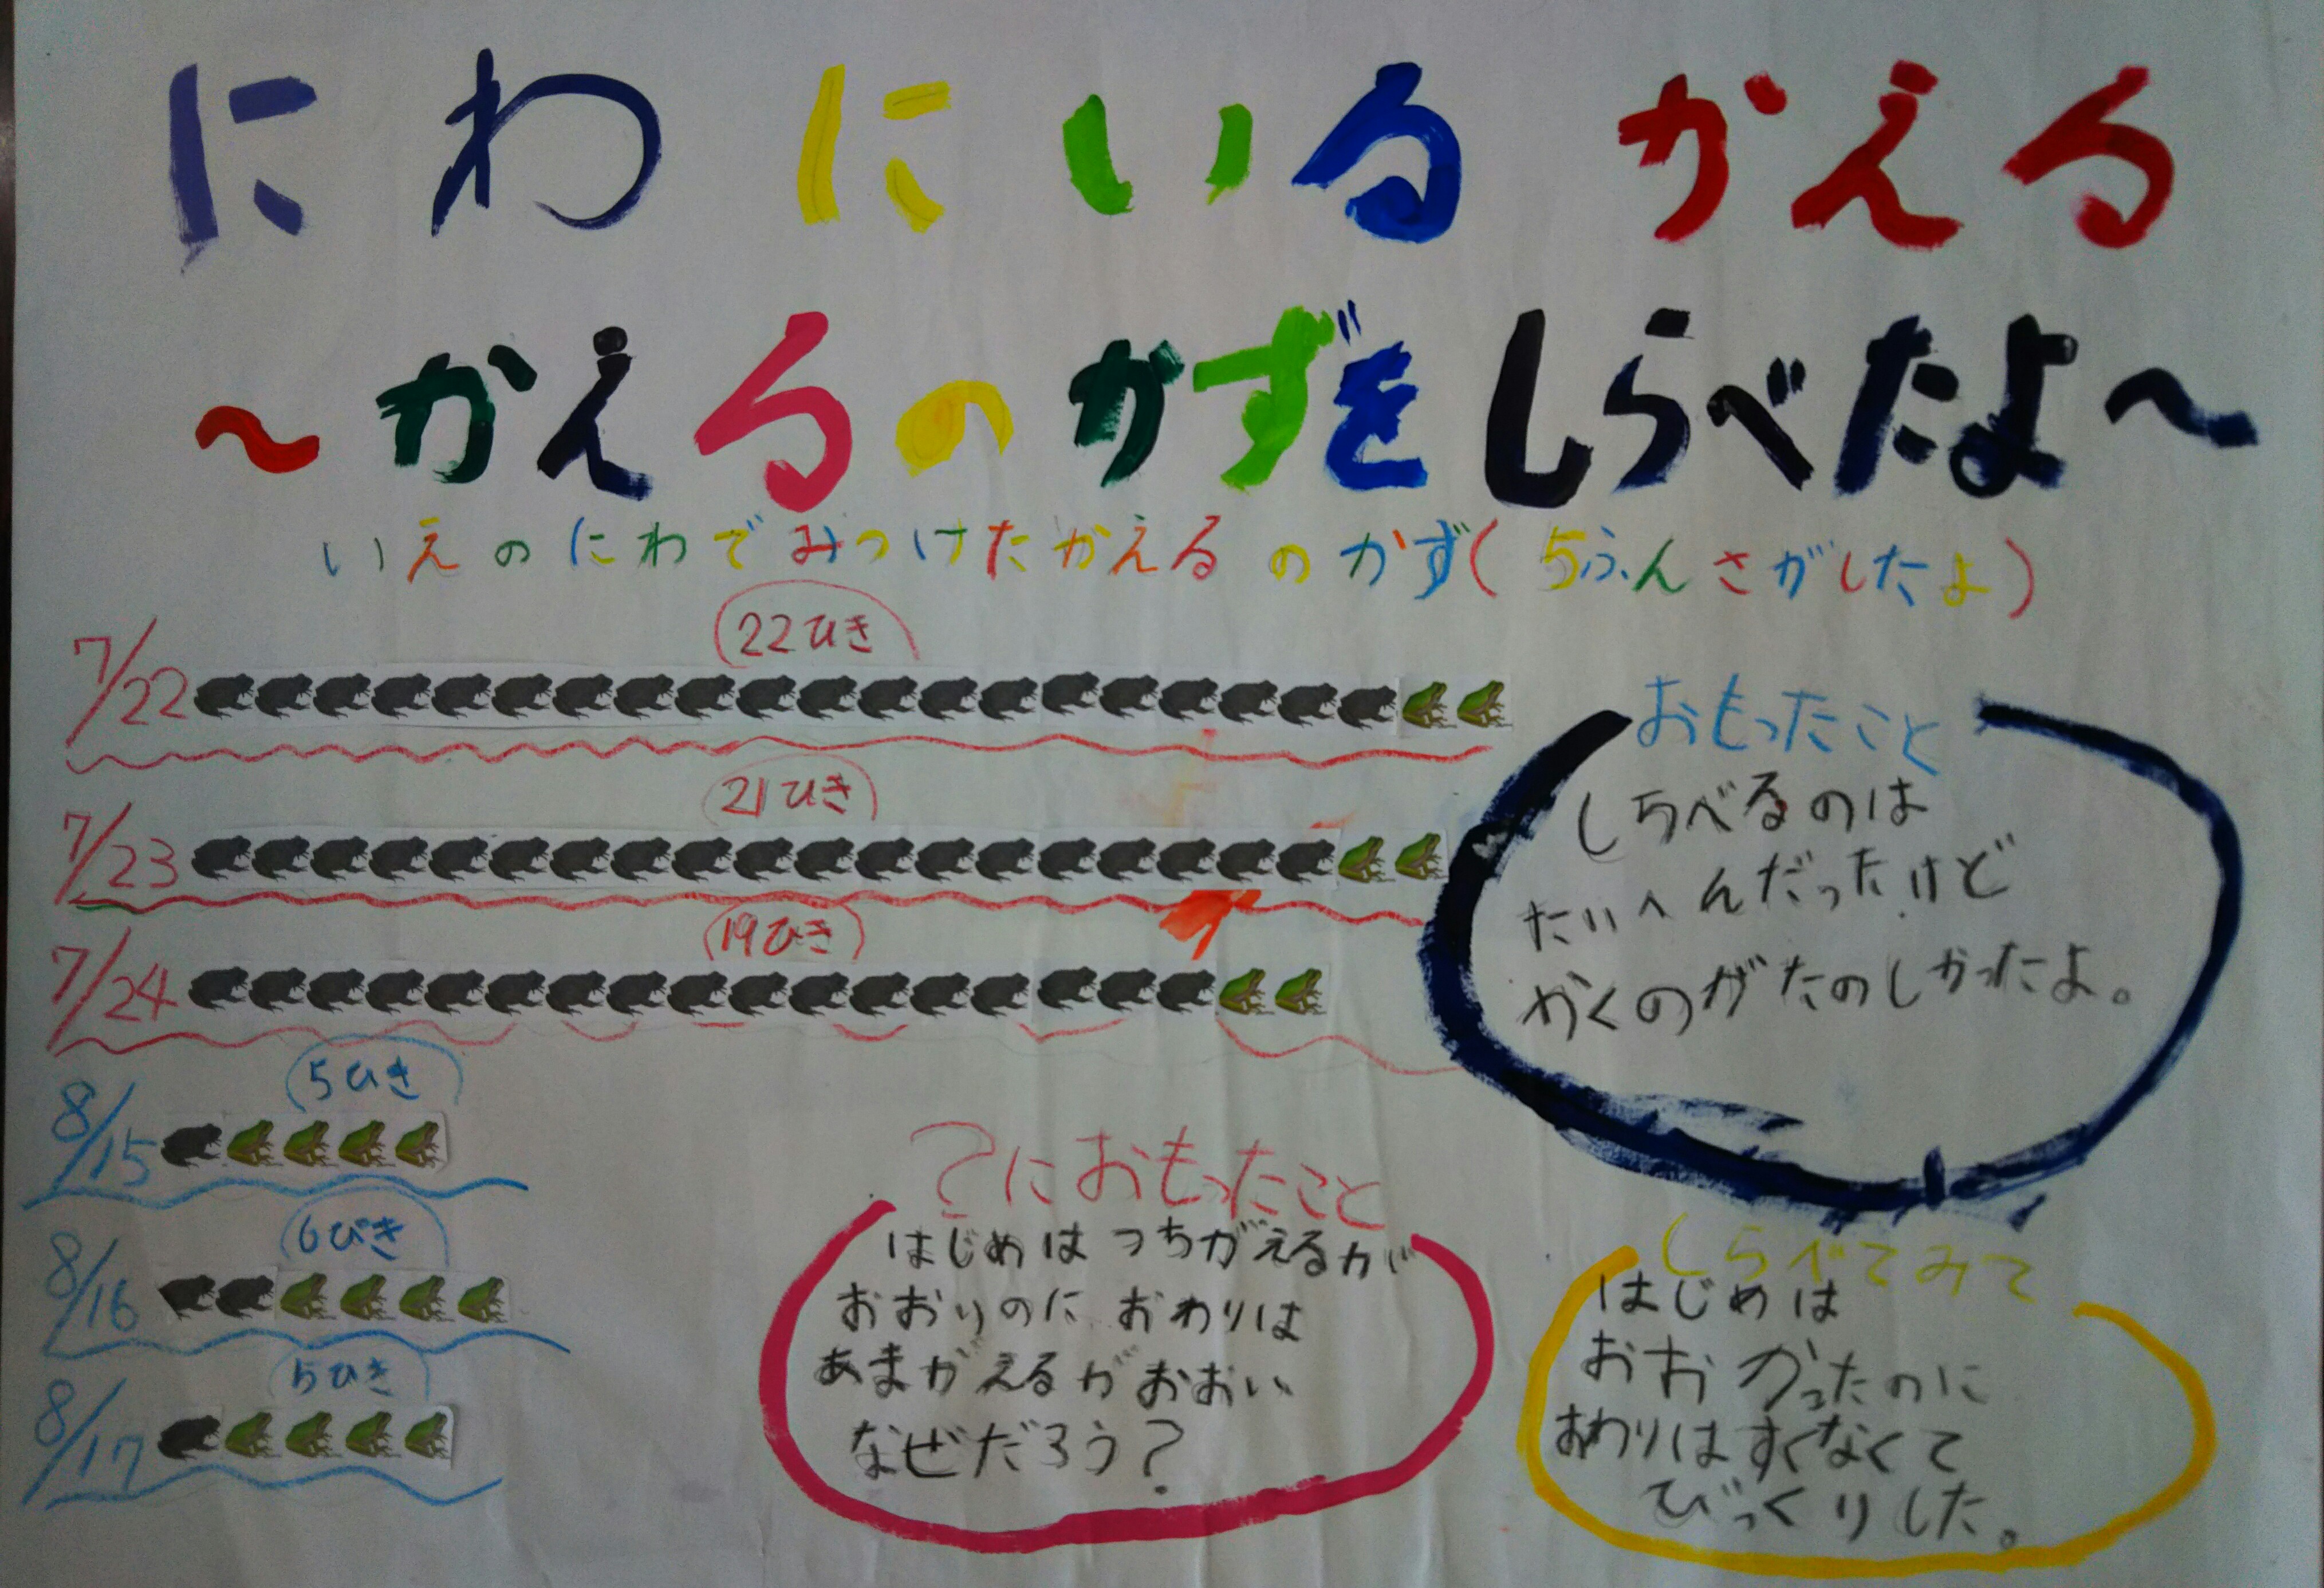 にわにいるかえる
～かえるのかずをしらべたよ～
いえのにわでみつけたかえるのかず(5ふんさがしたよ)
22ひき
7/22
21ひき
7/23
19ひき
7/24
5ひき
8/15
6ぴき
8/16
5ひき
8/17
おもったこと
しらべるのは
たいへんだったけど
かくのがたのしかったよ。
?におもったこと
はじめはつちがえるが
おおいのにおわりは
あまがえるがおおい
なぜだろう?
しらべてみて
はじめは
おおかったのに
おわりはすくなくて
びっくりした。